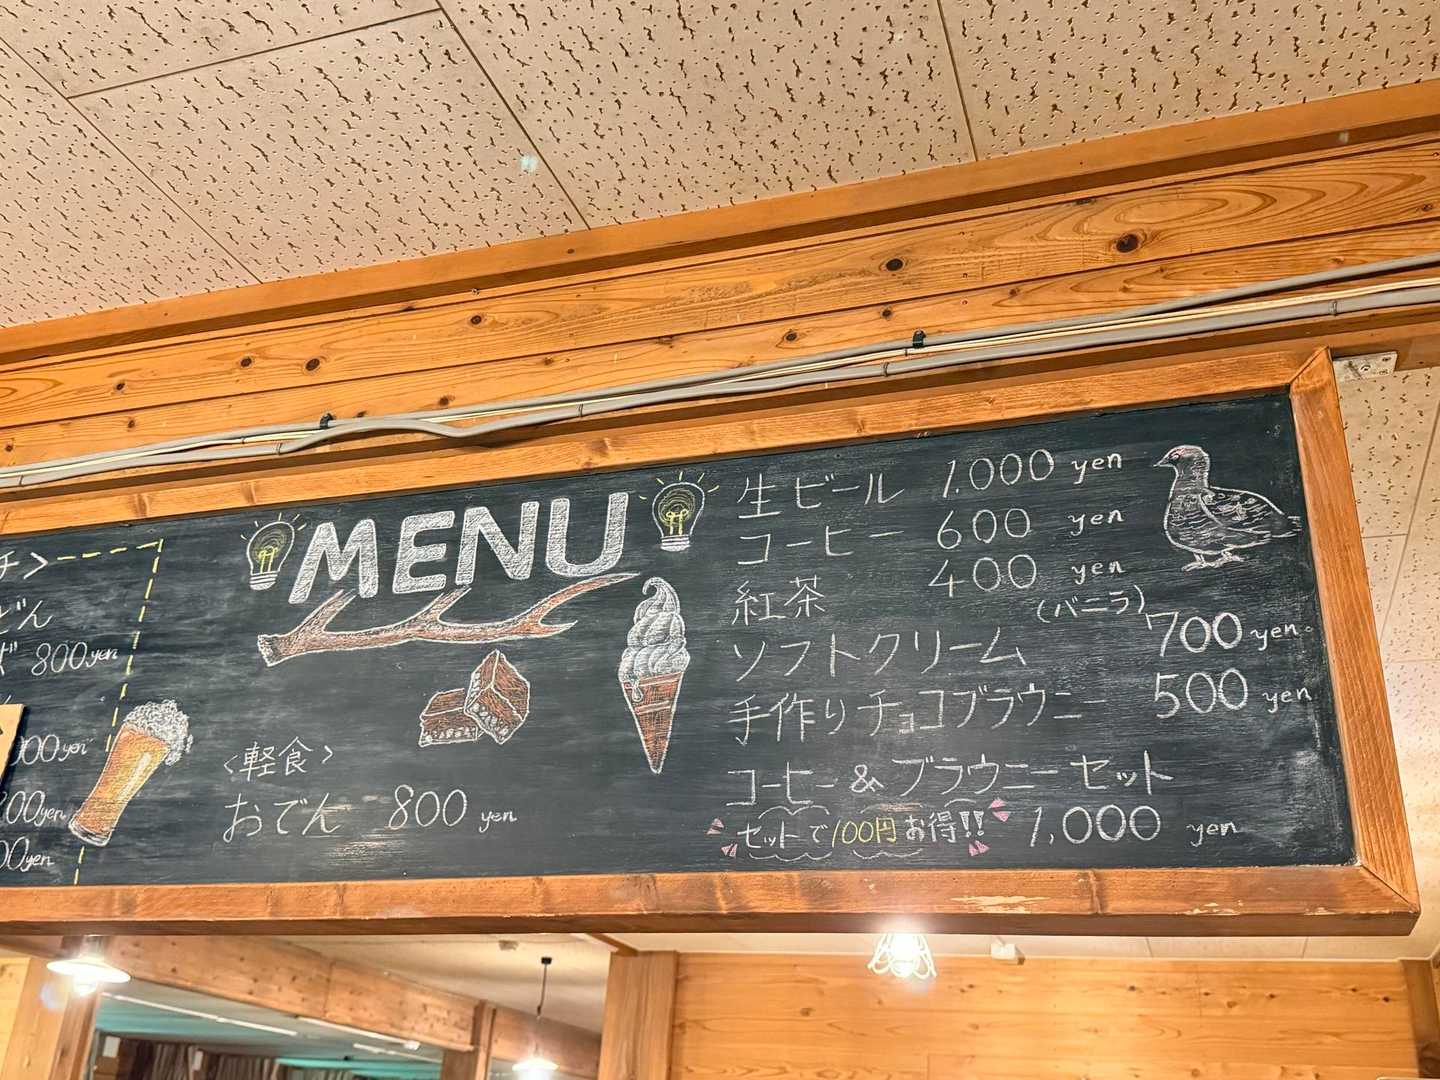 チ>
どん
ば 800yen
00yen
00yen
00yen
MENU
<軽食>
おでん 800 yen
生ビール 1.000 yen
コーヒー 600 yen
紅茶 400 yen
(バニラ)
ソフトクリーム 700 yen
手作りチョコブラウニー 500 yen
コーヒー&ブラウニーセット
セットで100円お得!! 1,000 yen